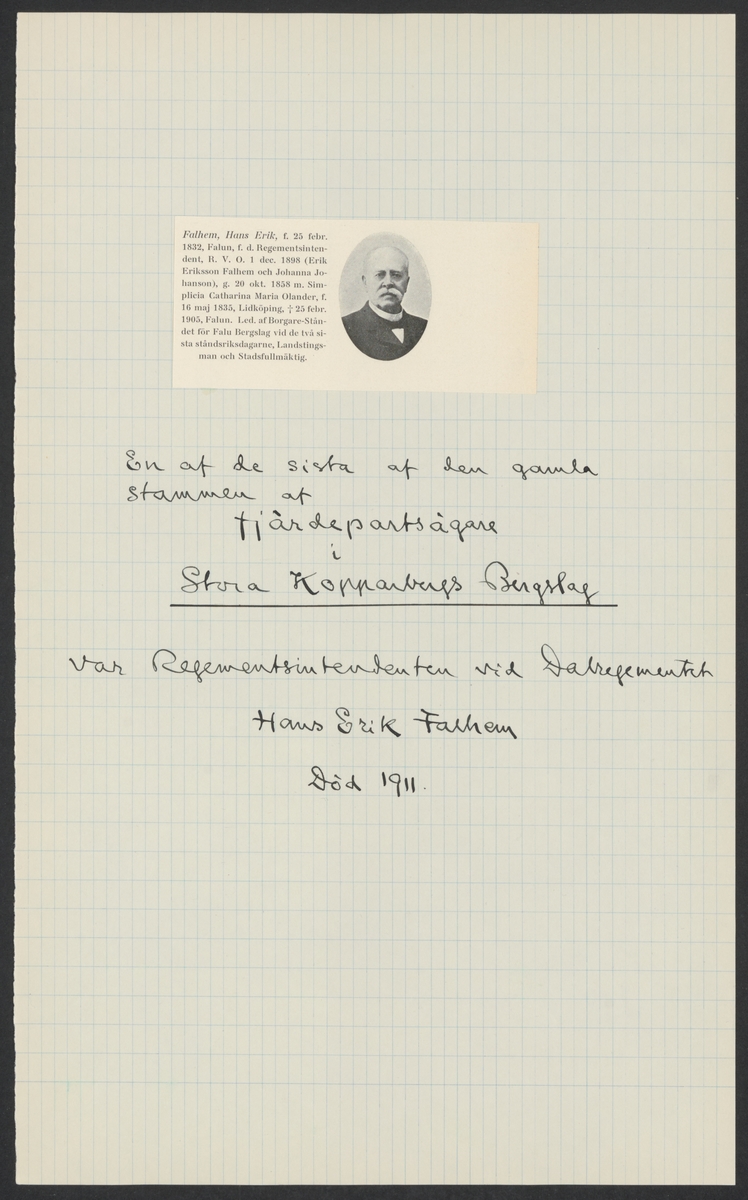 Falhem, Hans Erik, f. 25 febr.
1832, Falun, f. d. Regementsinten-
dent, R. V. O. 1 dec. 1898 (Erik
Eriksson Falhem och Johanna Jo-
hanson), g. 20 okt. 1858 m. Sim-
plicia Catharina Maria Olander, f.
16 maj 1835, Lidköping, † 25 febr.
1905, Falun. Led. af Borgare-Stån-
det för Falu Bergslag vid de två si-
sta ståndsriksdagarne, Landstings-
man och Stadsfullmäktig.
En af de sista af den gamla
stammen af
fjärdepartsägare
i
Stora Kopparbergs Bergslag
var Regementsintendenten vid Dalregementet
Hans Erik Falhem
Död 1911.